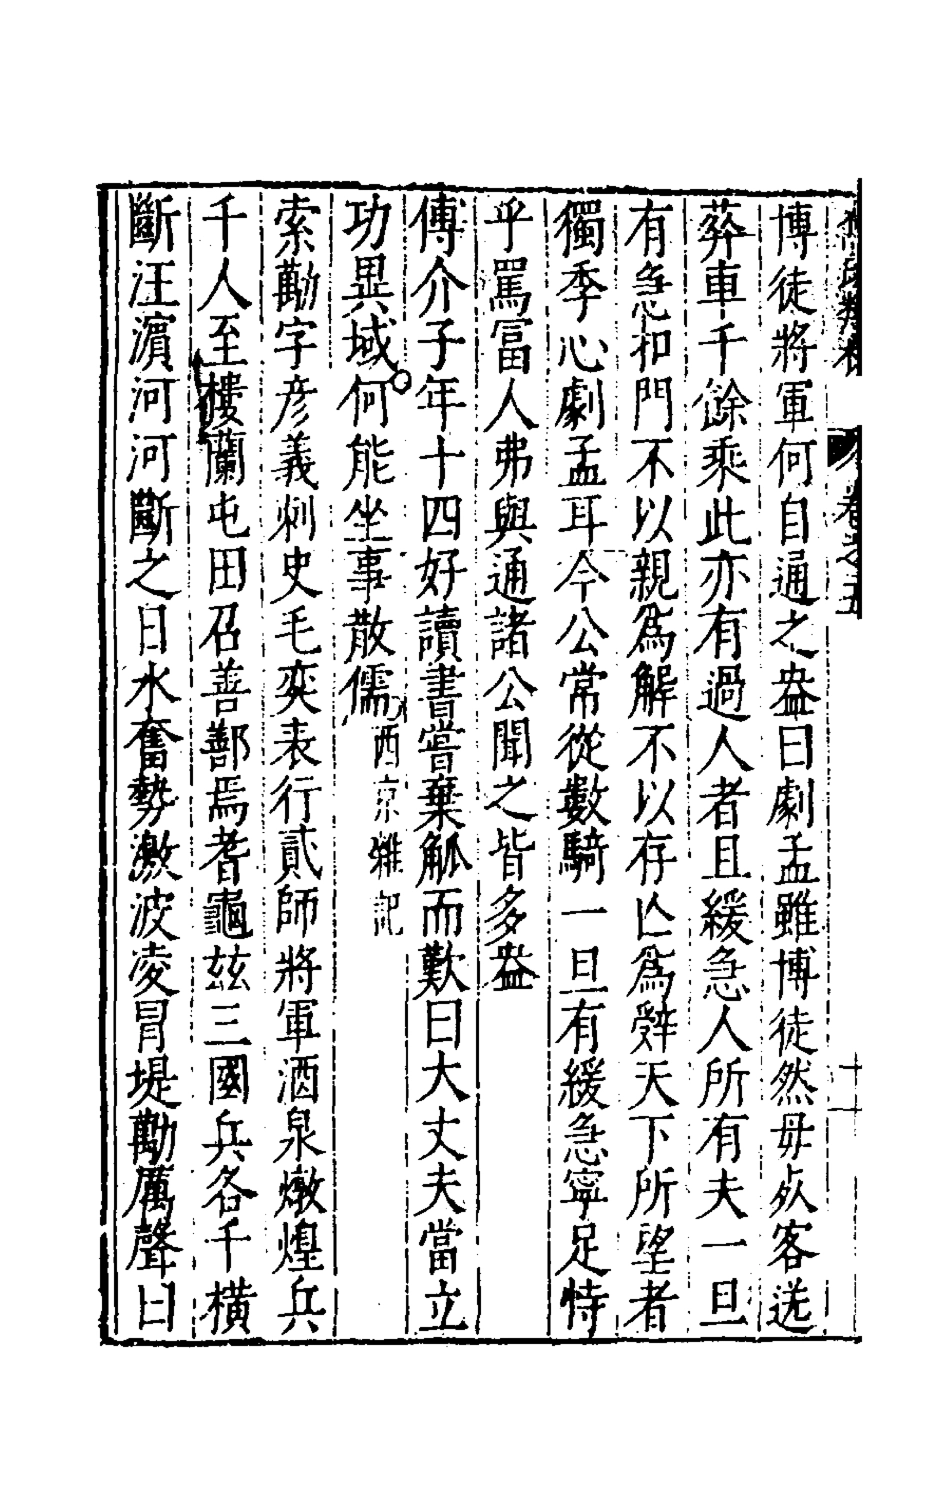 卷之五
博徒將軍何自通之盎曰劇孟雖博徒然毋死客送
葬車千餘乘此亦有過人者且緩急人所有夫一旦
有急扣門不以親爲解不以存亾爲辤天下所望者
獨季心劇孟耳今公常從數騎一旦有緩急寧足恃
乎罵富人弗與通諸公聞之皆多盎
傅介子年十四好讀書嘗棄觚而歎曰大丈夫當立
功異域何能坐事散儒西京雜記
索勱字彦義刺史毛奕表行貳師將軍酒泉燉煌兵
千人至樓蘭屯田召善鄯焉耆龜玆三國兵各千橫
斷汪濵河河斷之日水奮勢激波凌冐堤勱厲聲曰